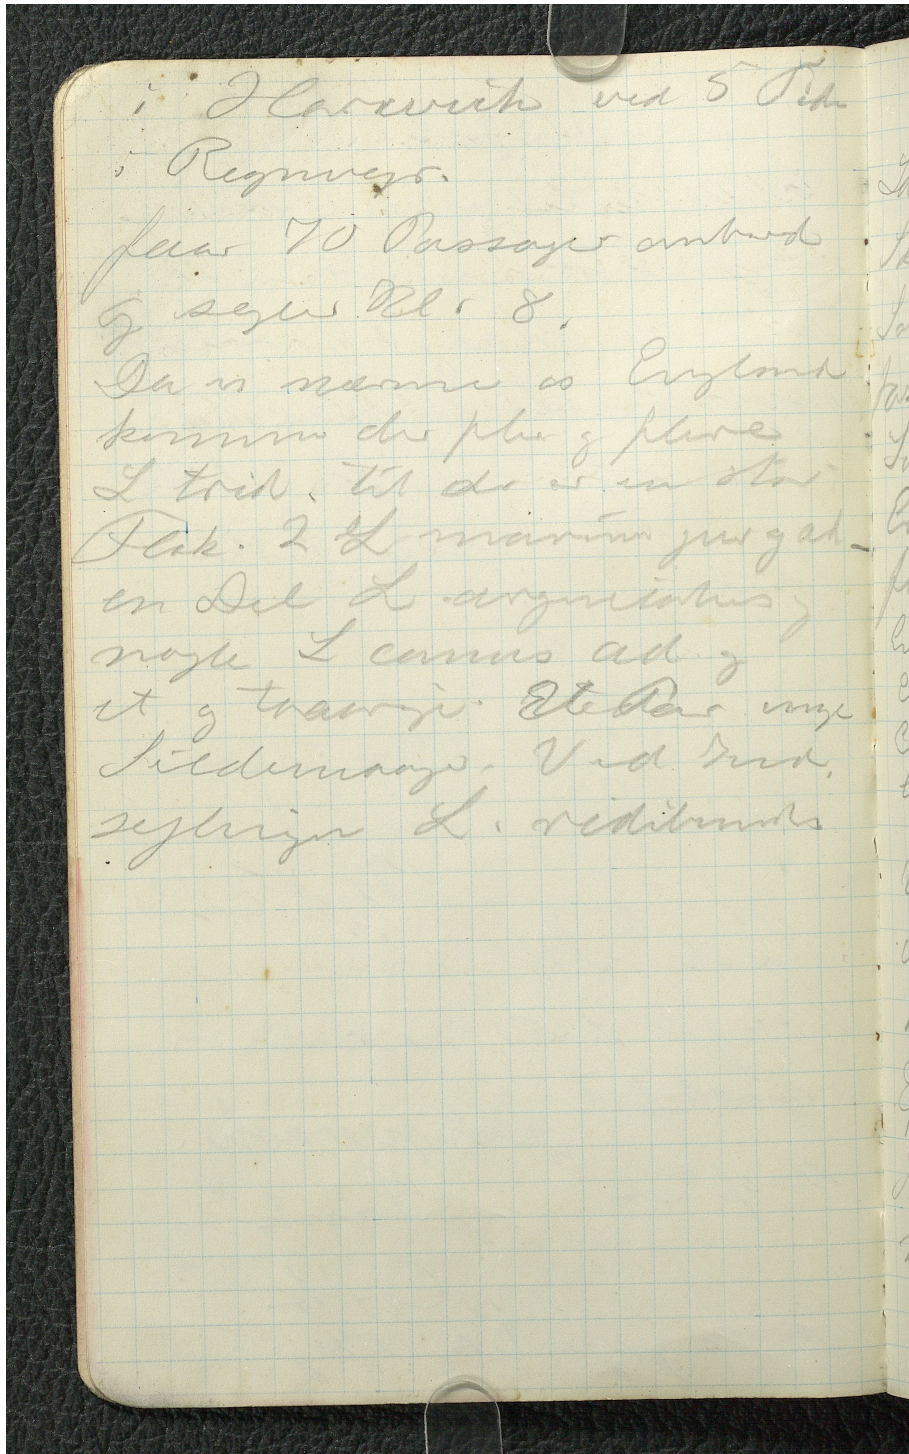 i Harwich ved 5 Tiden
i Regnvejr.
faar 70 Passager ombord
og sejler Kl. 8.
Da vi nærme os England
komme der fler og flere
L trid. til der er en stor
Flok. 2 L marinus jun og ad
en Del L argentatus og
nogle L canus ad og
et og toaarige. Et Par unge
Sildemaager. Ved Ind.
sejlingen L. ridibundus